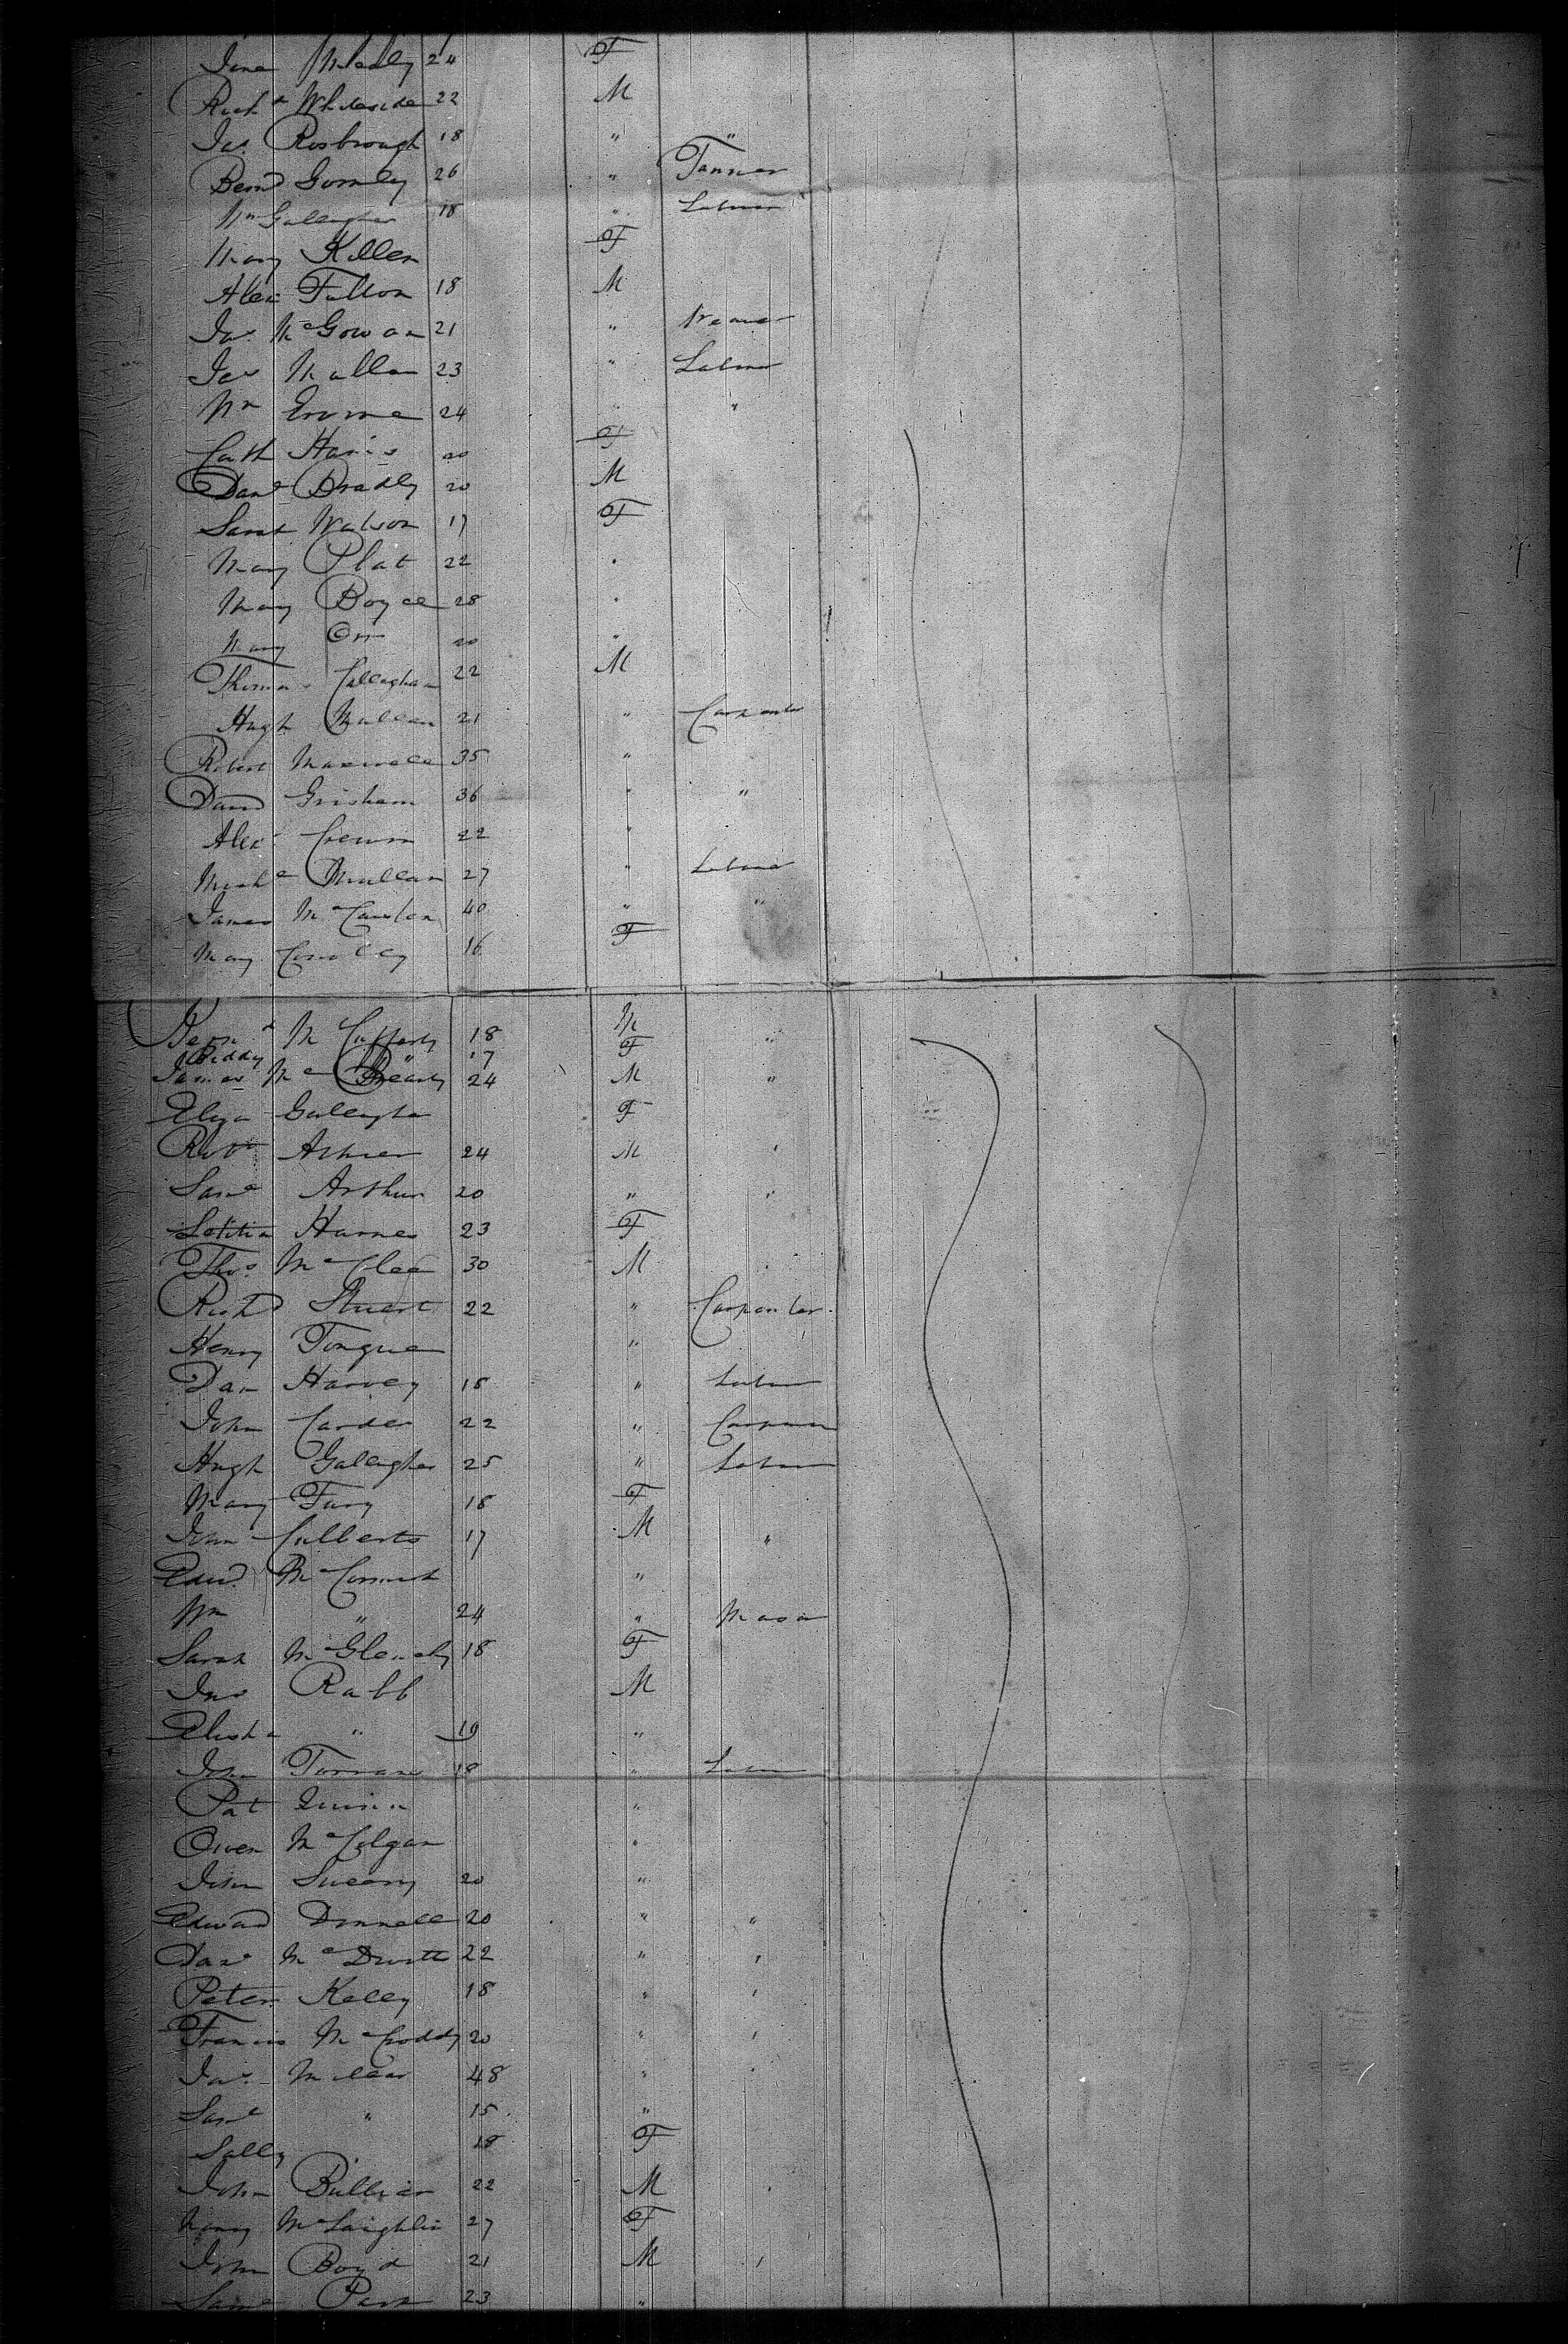 Jane 24 F
Richd Whiteside 22 M
Jas. Rosbrough 18 " "
Bernd Gormley 26 " Tanner
Wm Gallagher 18 " Labour
Mary Killen F
Alex Fulton 18 M
Jas. McGowan 21 " Weaver
Jas Mullen 23 " Labour
Wm Irvine 24 " "
Cath Haris 20 F
Danl Bradly 20 M
Sarah Watson 17 F
Mary Plat 22 "
Mary Boyce 28 "
Mary Orr 20 "
Thomas Callaghan 22 M
Hugh Mullan 21 " Carpenter
Robert Maxwell 35 "
David Grisham 36 " "
Alex 22 "
Michl Mullan 27 " Labour
James 40 " "
Mary Conolly 16 F
Bernd McCafferty 18 M "
Biddy " 17 F
James Mc 24 M "
Eliza Gallagher F
Robt 24 M "
Saml Arthur 20 " "
Letitia 23 F
Thos. 30 M "
Richd Stuart 22 " Carpenter
Henry Tongue "
Dan Harvey 18 " Labour
John 22 " Carpenter
Hugh Gallagher 25 " Labour
Mary Fury 18 F
Culberts 17 M "
Edwd. "
Wm " 24 " Mason
Sarah McGlenchy 18 F
Jno Rabb M
Elisha " 19 "
John 18 " Labour
Pat Quinn "
Owen McColgan "
John Sweeny 20 "
Edward Donnell 20 " "
McDevitt 22 " "
Peter Kelly 18 " "
Francis 20 " "
Jas. Millar 48 " "
Saml " 15 "
Sally " 18 F
John 22 M "
Nancy McLaighlin 27 F
John Boyd 21 M "
Saml Park 23 "